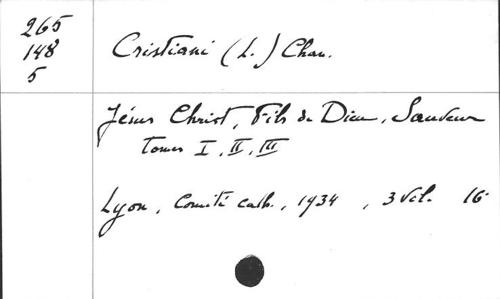 265
148
5
Cristiani (L.) Chan.
Jésus Christ, Fils de Dieu, Sauveur
tomes I, II, III
Lyon, Comité cath., 1934, 3 vol. 16°